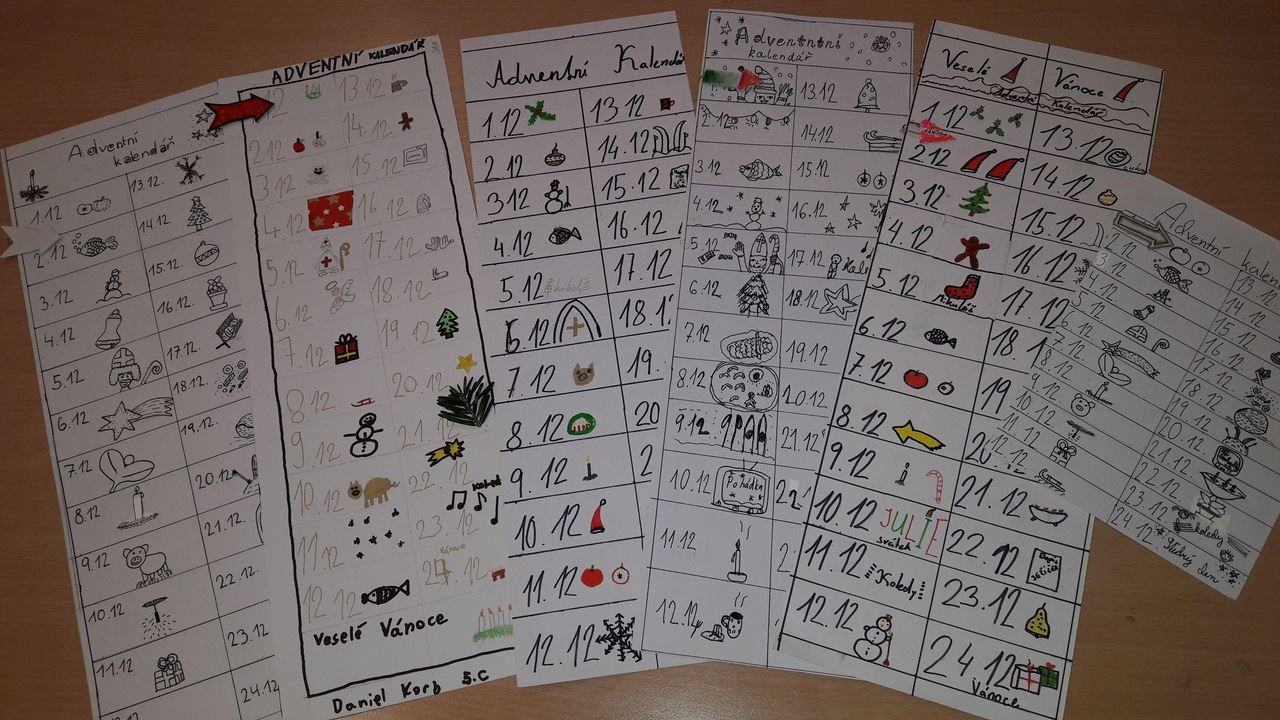 Adventní
kalendář
1.12
13.12.
2.12
14.12.
3.12
15.12.
4.12
16.12.
5.12
17.12.
6.12
18.12.
7.12
19.12.
8.12
20.12
9.12
21.12.
10.12
22.12.
11.12
23.12.
24.12
ADVENTNÍ KALENDÁŘ
13.12
2.12
14.12
3.12
15.12
4.12
16.12
5.12
17.12
6.12
18.12
7.12
19.12
8.12
20.12
9.12
21.12
10.12
22.12
Koled
11.12
23.12
Vánoce
12.12
24.12
Veselé Vánoce
Daniel Korb 5.C
Adventní Kalendář
1.12
13.12
2.12
14.12
3.12
15.12
4.12
16.12
5.12
17.12
6.12
18.1
7.12
19.
8.12
20
9.12
2
10.12
11.12
12.12
Adventntní
kalendář
13.12
2.12
14.12
3.12
15.12
4.12
16.12
5.12
17.12
6.12
18.12
7.12
19.12
8.12
20.12
9.12
21.12
10.12
Pohádka
22
11.12
12.12
Veselé Vánoce
Kalendář
1.12
13.12
2.12
14.12
3.12
15.12
4.12
16.12
5.12
Mikoláš
17.12
6.12
18.1
7.12
19
8.12
20
9.12
21.12
10.12 JULIE
svátek
22.12
11.12 Koledy
23.12
12.12
24.12
Vánoce
Adventní kalen
2.12
13.12
14.12
15.12
16.12
17.12
18.12
19.12
20.12
21.12
22.12
23.12
koledy
24.12
štědrý den